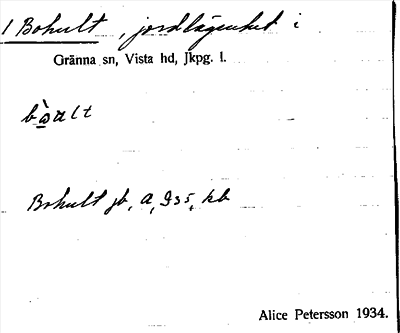 1 Bohult, jordlägenhet i
Gränna sn, Vista hd, Jkpg. l.
Bohult jb, a, 935, kb
Alice Petersson 1934.